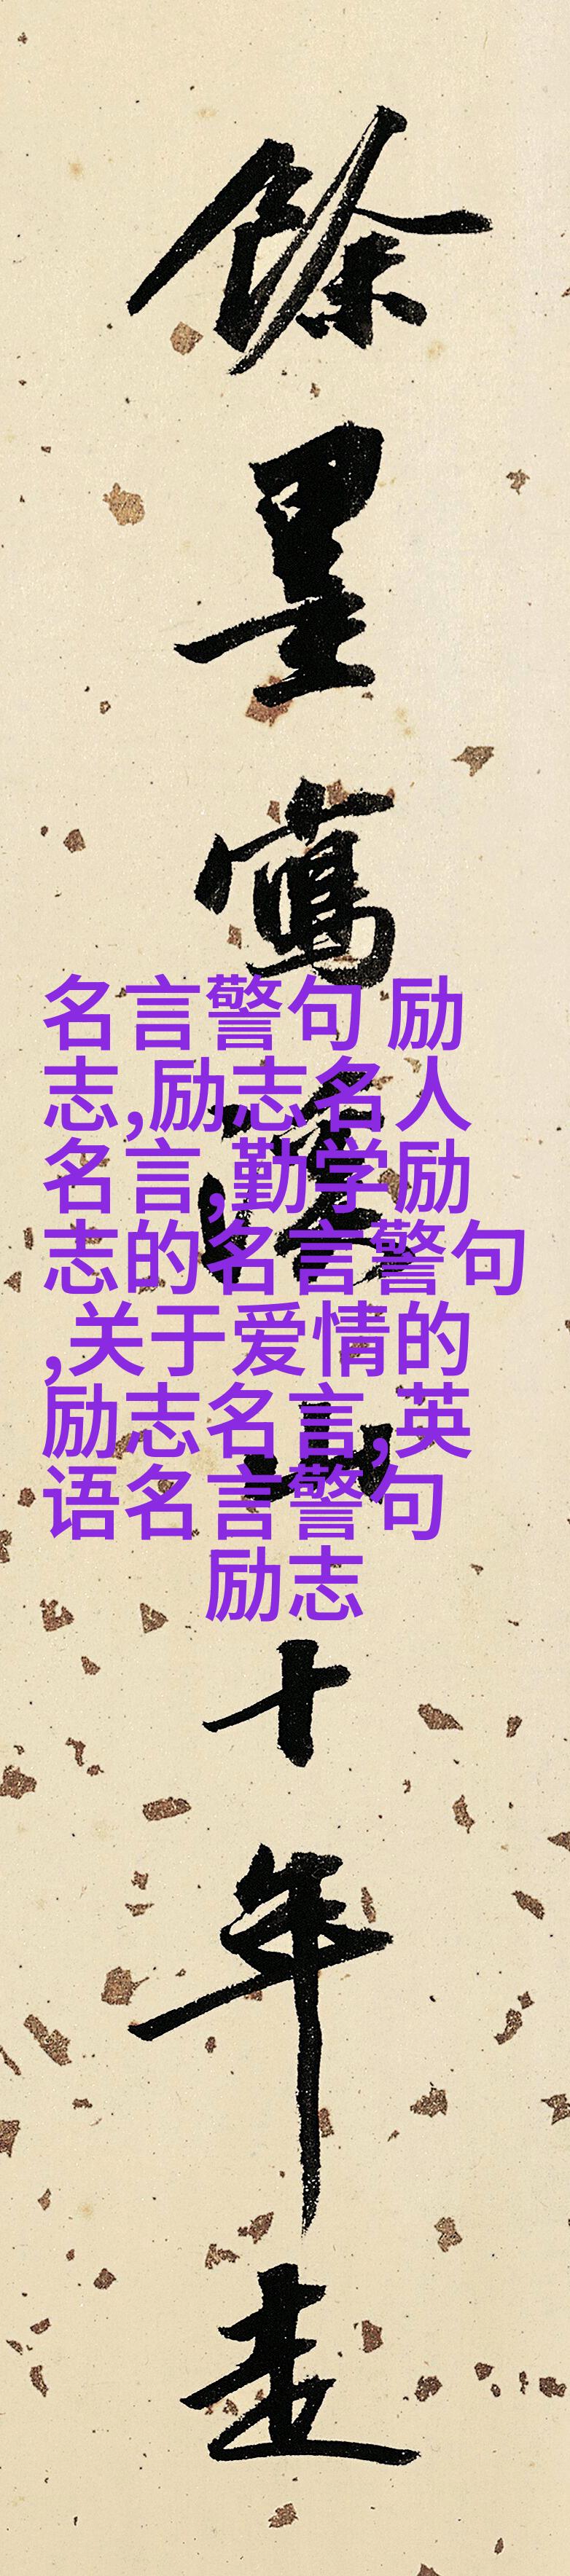 餘墨寫山十年走
名言警句 励
志,励志名人
名言,勤学励
志的名言警句
,关于爱情的
励志名言,英
语名言警句
励志